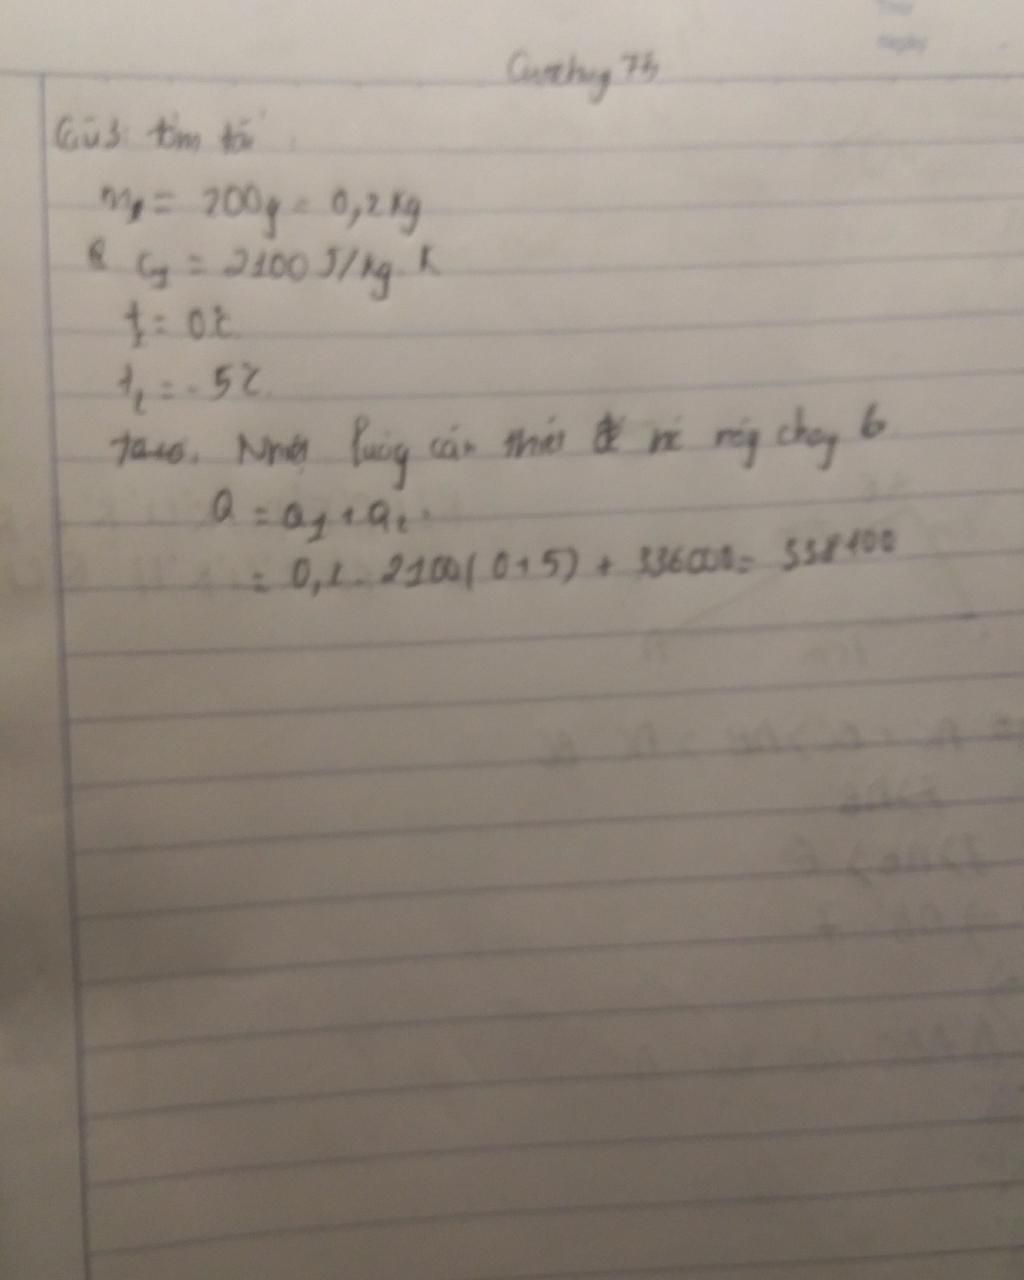 Câu 3: tóm tắt
m₁ = 200g = 0,2 Kg
C₁ = 2100 J/Kg K
t₁ = 0°C
t₂ = -5°C
Nhiệt lượng cần thiết để nó nóng chảy
Q = Q₁ + Q₂.
= 0,2 . 2100(0+5) + 336000 = 338100